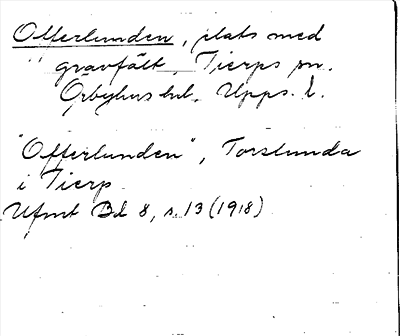 Offerlunden, plats med
gravfält, Tierps sn.
Örbyhus hd. Upps. l.
"Offerlunden", Torslunda
i Tierp
Ufmt Bd 8, s. 13 (1918)